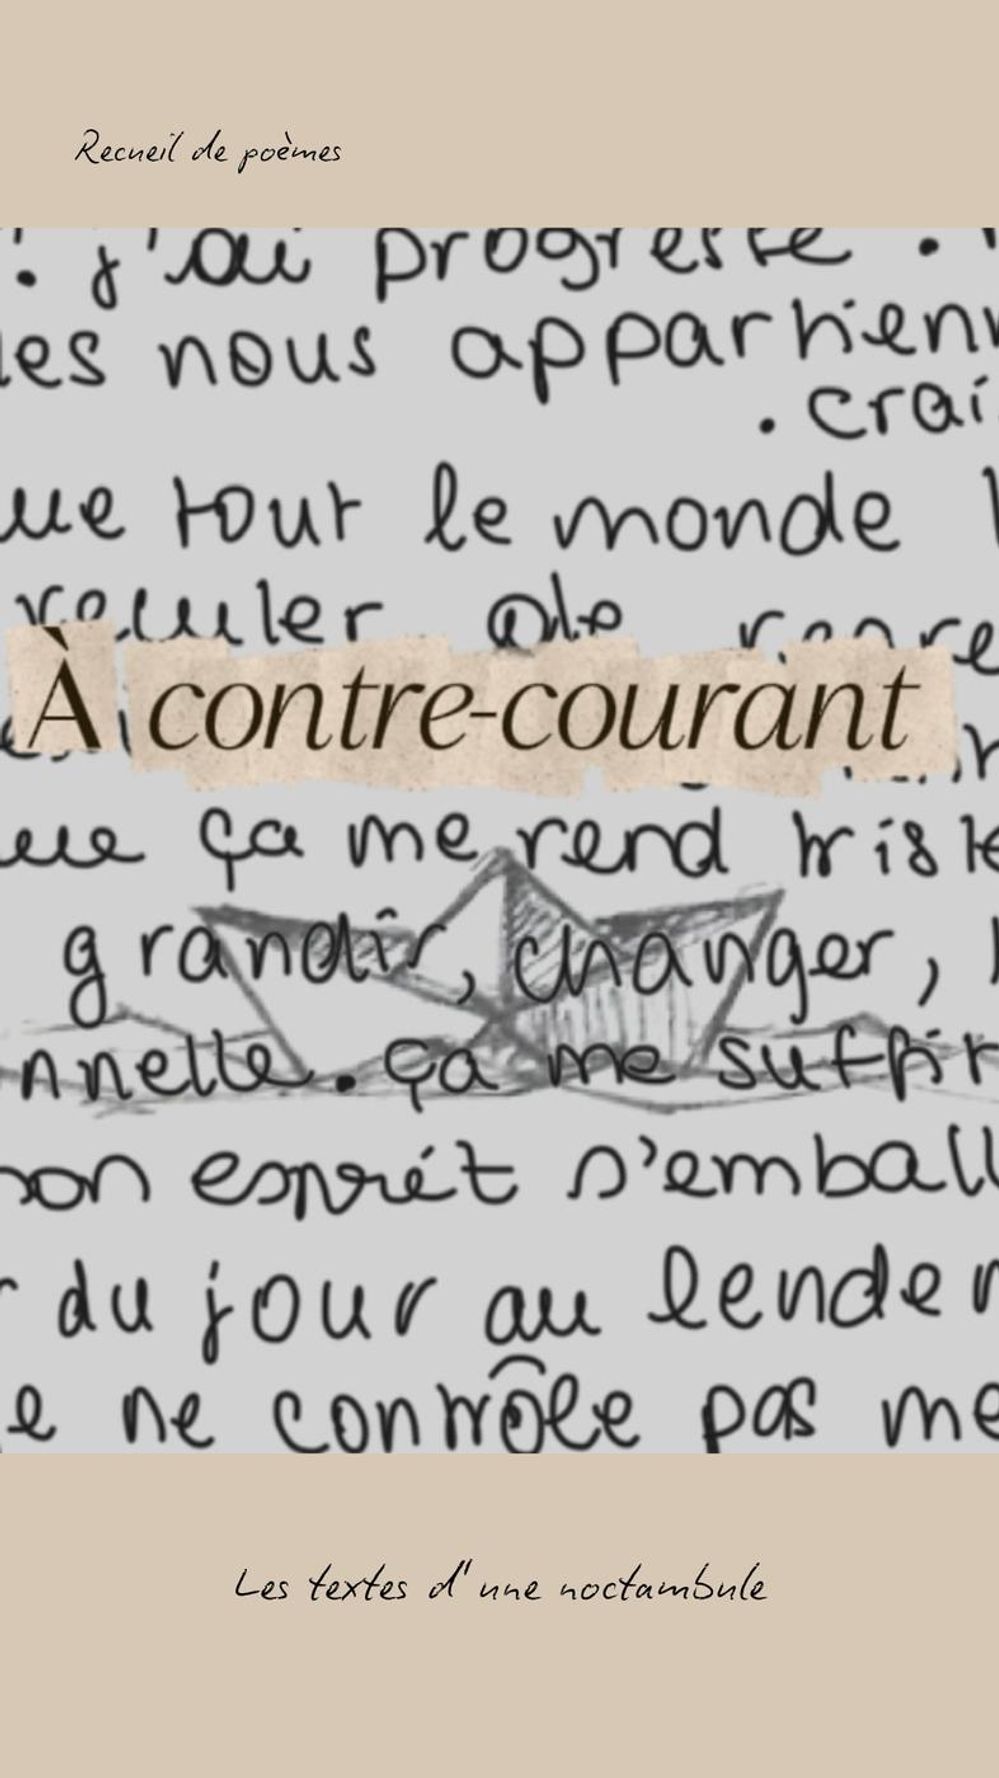 Recueil de poèmes
j'ai progressé.
les nous appartienn
. crai
ue tout le monde
reculer de
À contre-courant
ça me rend triste
grandir, changer,
nnelle. ça me suffit
son esprit s'emball
du jour au lender
e ne contrôle pas me
Les textes d'une noctambule